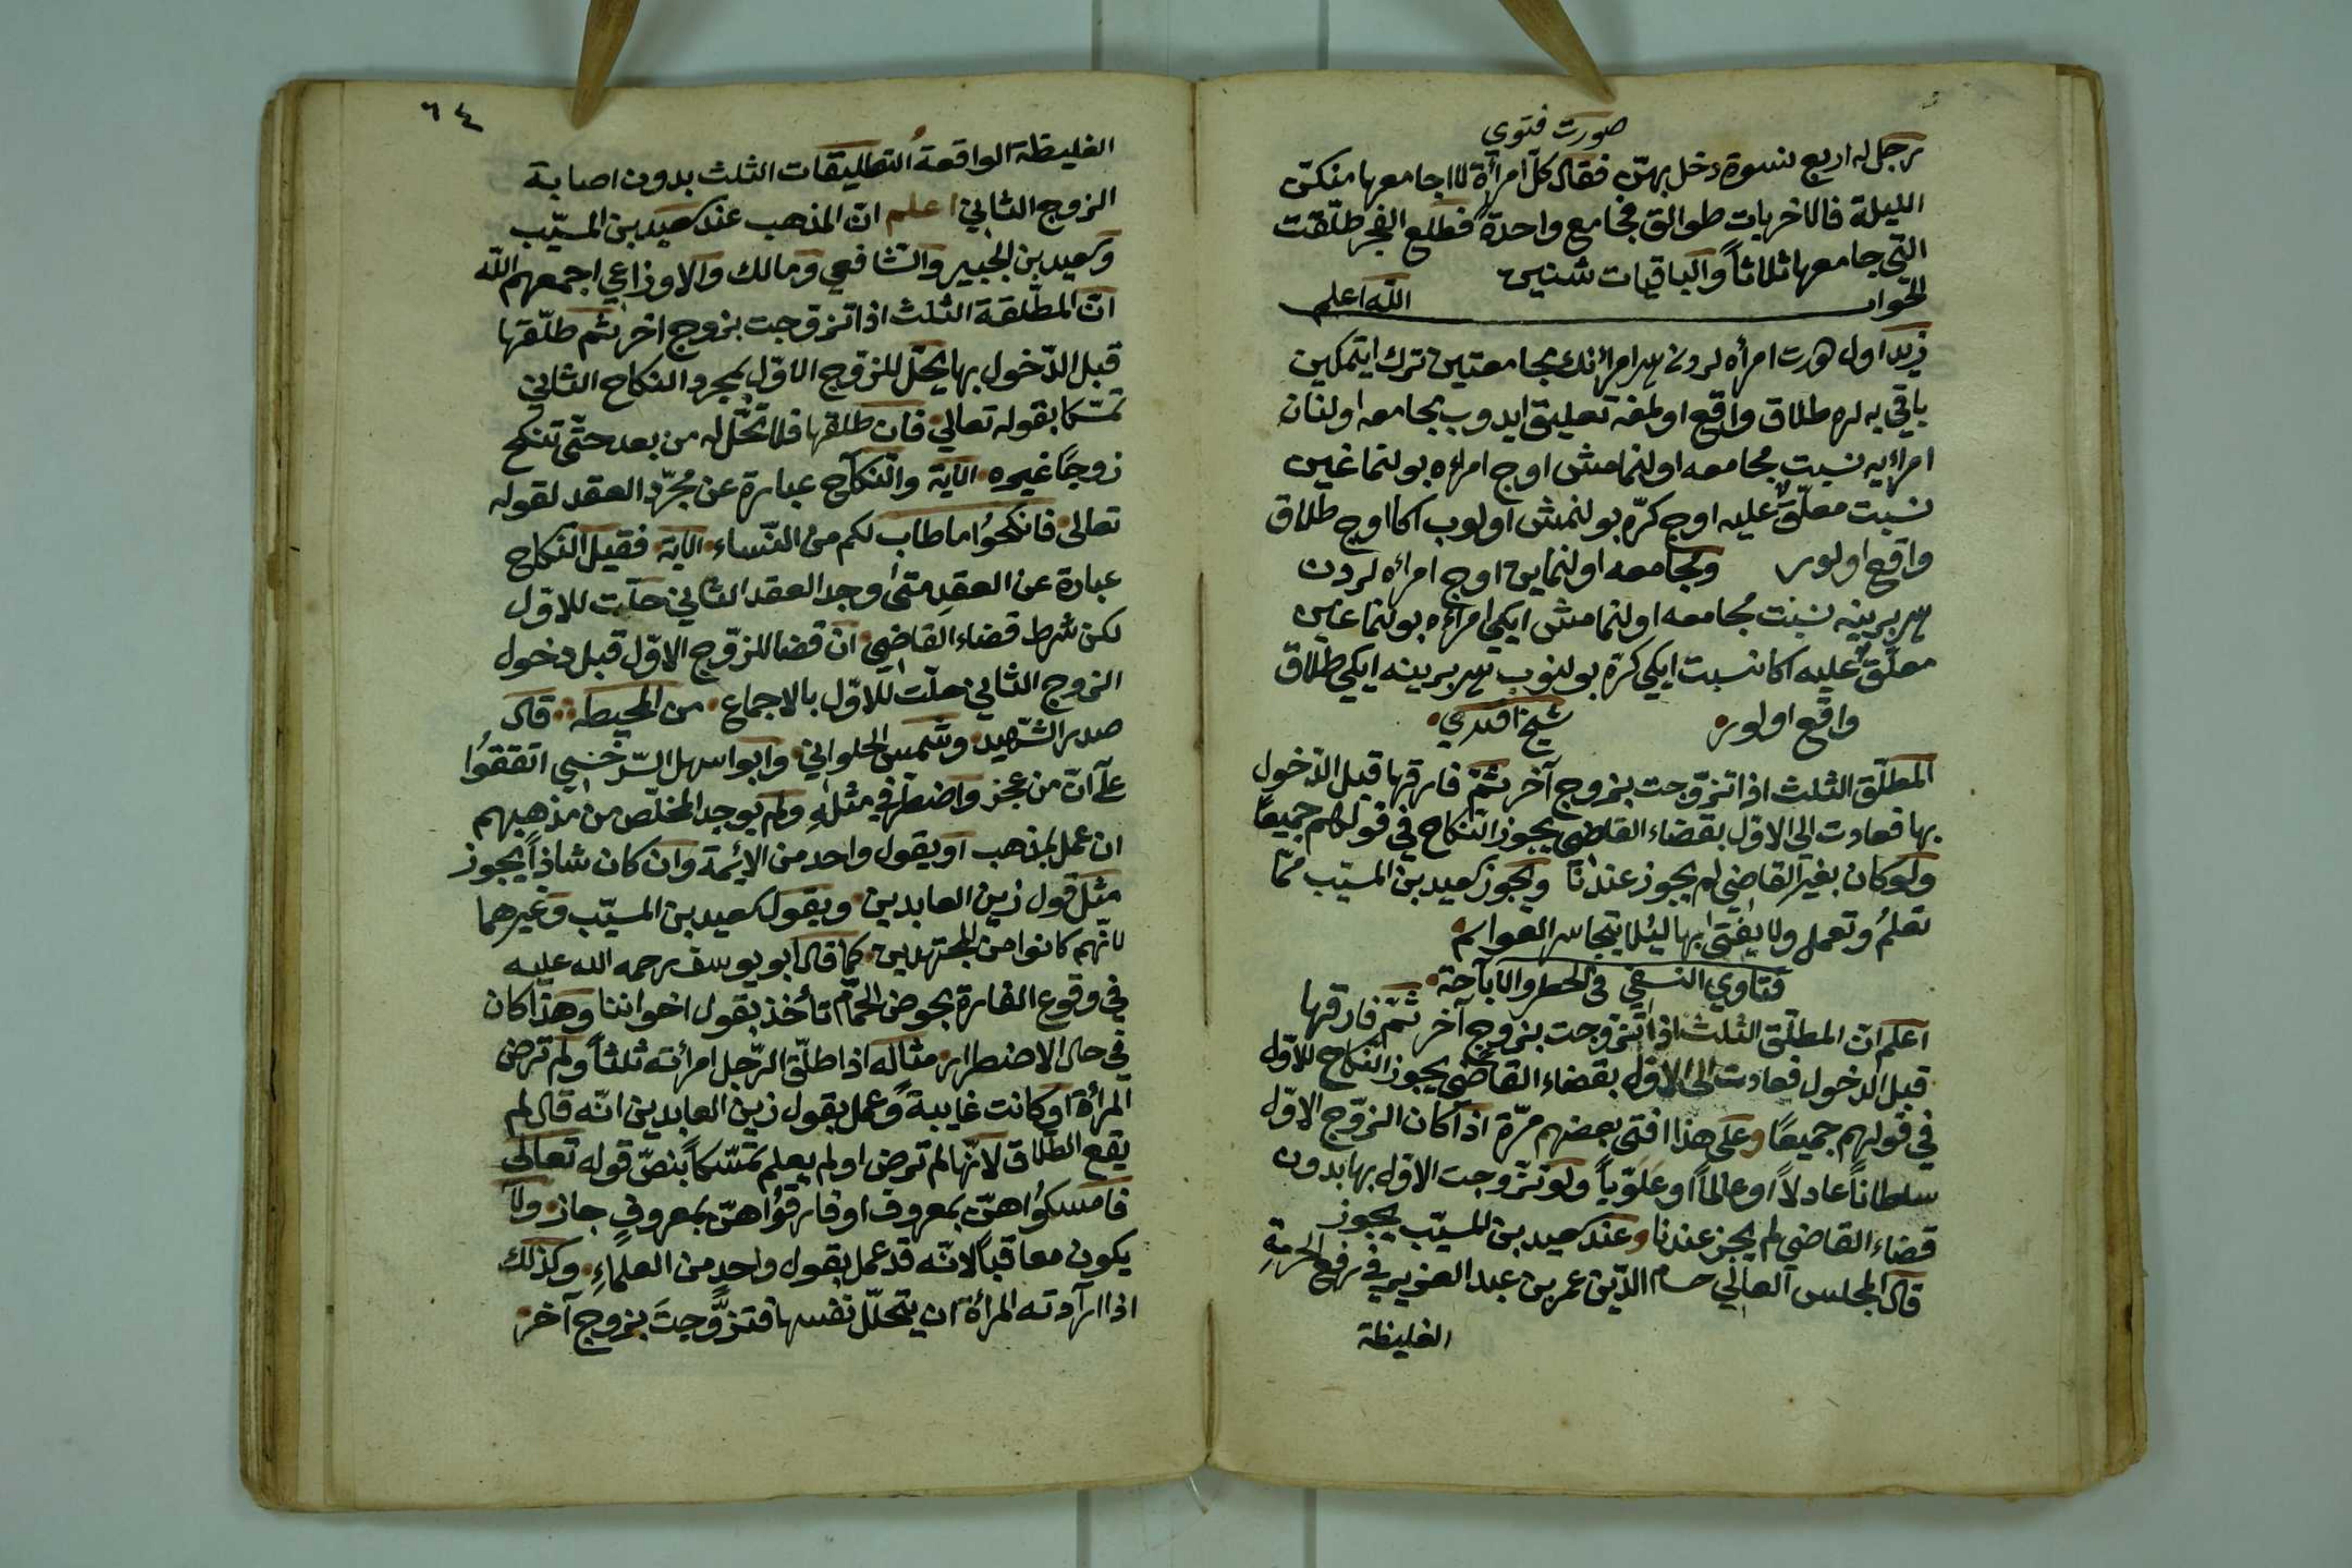 صورت فتوى
رجل له اربع نسوة دخل بهنّ فقال كلّ امرأة لا اجامعها منكنّ
الليلة فالاخريات طوالق فجامع واحدة فطلع الفجر طلّقت
التي جامعها ثلاثاً والباقيات ثنتين
الجواب الله اعلم
زيد اول دورت امرأه لردن هر امرأنك مجامعتين ترك ايتمكين
باقي يه لره طلاق واقع اولمغه تعليق ايدوب مجامعه اولنان
امرأيه نسبت مجامعه اولنمامش اوج امرأه بولنماغين
نسبت معلّق عليه اوج كرّه بولنمش اولوب اكا اوج طلاق
واقع اولور ومجامعه اولنماين اوج امرأه لردن
هر بريينه نسبت مجامعه اولنمامش ايكي امرأه بولنماغين
معلّق عليه اكا نسبت ايكي كرّه بولنوب هر بريينه ايكي طلاق
واقع اولور شيخ افندي
المطلّق الثلث اذا تزوّجت بزوج آخر ثمّ فارقها قبل الدّخول
بها فعادت الى الاوّل بقضاء القاضي يجوز النّكاح في قولهم جميعًا
ولو كان بغير القاضي لم يجوز عندنا ويجوز سعيد بن المسيّب ممّا
تعلمُ وتعمل ولا يفتى بها ليُلا يتجاسر العوام
فتاوي النسفي في الحظر والاباحة
اعلم انّ المطلّق الثلث اذا تزوجت بزوج آخر ثمّ فارقها
قبل الدخول فعادت الى الاوّل بقضاء القاضي يجوز النّكاح للاوّل
في قولهم جميعًا وعلى هذا افتى بعضهم مرّة اذا كان الزّوج الاوّل
سلطاناً عادلاً او عالماً او علويّاً ولو تزوجت الاوّل بها بدون
قضاء القاضي لم يجز عندنا وعند سعيد بن المسيّب يجوز
قال المجلس العالي حسام الدّين عمر بن عبد العزيز في رفع الحرمةِ
الغليظة
٦٤
الغليظة الواقعةُ التطليقات الثلث بدون اصابة
الزوج الثاني اعلم انّ المذهب عند سعيد بن المسيّب
وسعيد بن الجبير والشافعي ومالك والاوزاعي اجمعهم اللّه
انّ المطلّقة الثلث اذا تزوجت بزوج اخر ثم طلّقها
قبل الدّخول بها يحلّ للزّوج الاوّل بمجرد النكاح الثاني
تمسّكا بقوله تعالى فان طلقها فلا تحلّ له من بعد حتّى تنكح
زوجًا غيره الآية والنّكاح عبارة عن مجرّد العقد لقوله
تعالى فانكحوُا ما طاب لكم من النّساء الآية فقيل النّكاح
عبادة عن العقدِ متى وجد العقد الثاني حلّت للاوّل
لكن شرط قضاء القاضي انّ قضا للزّوج الاوّل قبل دخول
الزوج الثاني حلّت للاوّل بالاجماع من المحيط قال
صدر الشّهيد وشمس الحلواني وابوا سهل السّرخسي اتفقوُا
علىَ انّ من عجز واضطرّ في مثلهِ ولم يوجد المخلّص من مذهبهم
ان عمل بمذهب او بقول واحد من الايمّة وان كان شاذاً يجوز
مثل قول زين العابدين وبقول سعيد بن المسيّب وغيرهما
لانّهم كانوا من المجتهدين كما قال ابو يوسف رحمه الله عليه
في وقوع الفارة بحوض الحمّام تأخذ بقول اخواننا وهذا كان
في حال الاضطرار مثاله اذا طلّق الرّجل امرأته ثلثاً ولم ترض
المرأة او كانت غايبةً وعمل بقول زين العابدين انّه قال لم
يقع الطّلاق لانّها لم ترض او لم يعلم تمسّكاً بنصّ قوله تعالى
فامسكوُاهنّ بمعروف او فارقوُاهنّ بمعروفٍ جاز ولا
يكون معاقباً لانّه قد عمل بقول واحدٍ من العلماءِ وكذلك
اذا ارآدته المرأة ان يتحلّل نفسها فتزوَّجتَ بزوج آخر